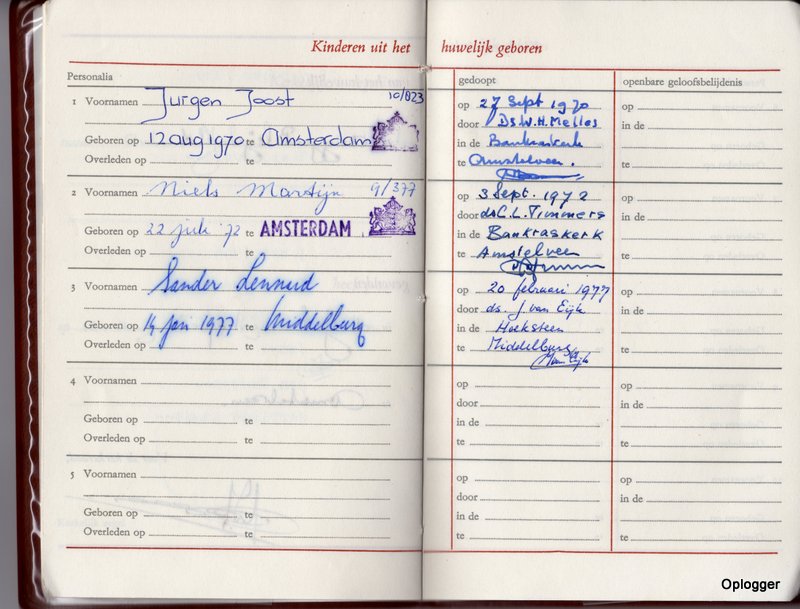 Kinderen uit het huwelijk geboren
Personalia
gedoopt
openbare geloofsbelijdenis
1 Voornamen Jurgen Joost 10/823
Geboren op 12 aug 1970 te Amsterdam
Overleden op te
op 27 Sept 1970
door Ds. W.H. Melles
in de Bankraskerk
te Amstelveen.
op
in de
te
2 Voornamen Niels Martijn 9/377
Geboren op 22 juli '72 te AMSTERDAM
Overleden op te
op 3 Sept. 1972
door ds C. L. Timmers
in de Bankraskerk
te Amstelveen
op
in de
te
3 Voornamen Sander Lennud
Geboren op 14 jan 1977 te Middelburg
Overleden op te
op 20 februari 1977
door ds. J. van Eijk
in de Hoeksteen
te Middelburg
op
in de
te
4 Voornamen
Geboren op te
Overleden op te
op
door
in de
te
op
in de
te
5 Voornamen
Geboren op te
Overleden op te
op
door
in de
te
op
in de
te
Oplogger